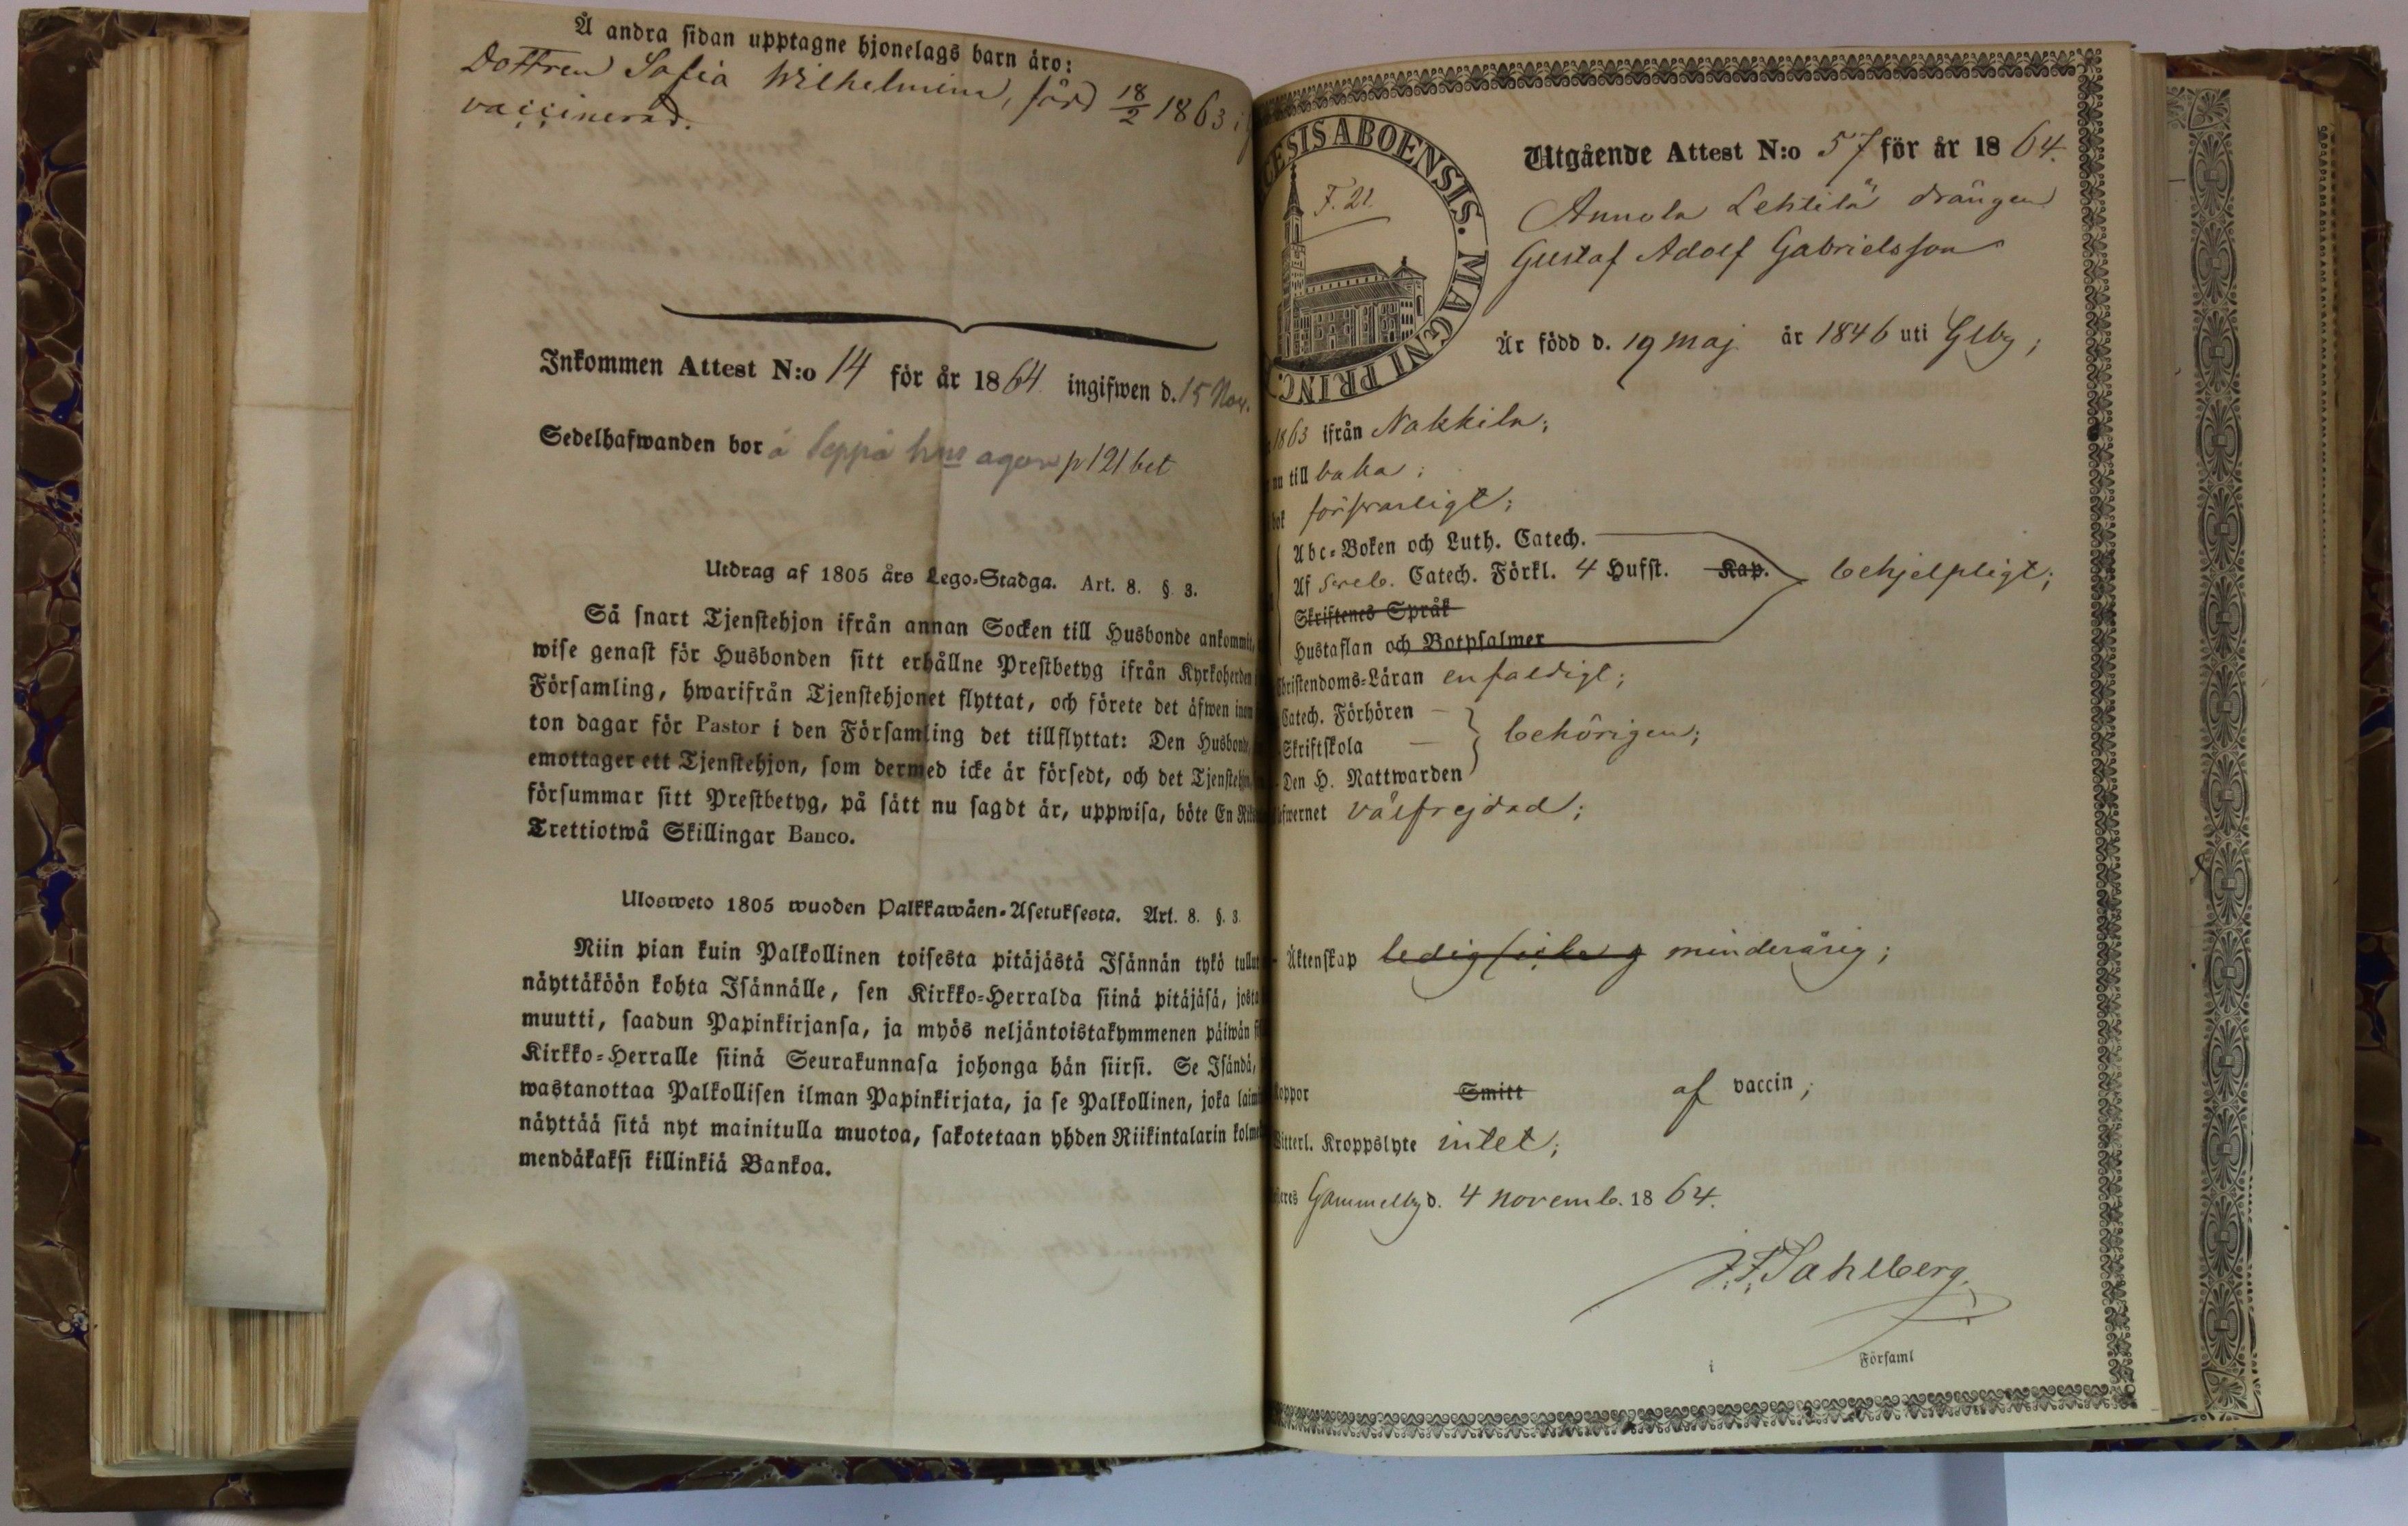 Å andra sidan upptagne hjonelags barn äro:
Dottren Sofia Wilhelmina, född 18/2 1863
vaccinerad.
Inkommen Attest N:o 14 för år 1864 ingifwen d. 15 Nov.
Sedelhafwanden bor å Seppä hus ägor p 121 bet
Utdrag af 1805 års Lego-Stadga. Art. 8. § 3.
Så snart Tjenstehjon ifrån annan Socken till Husbonde ankommit,
wise genast för Husbonden sitt erhållne Prestbetyg ifrån Kyrkoherden
Församling, hwarifrån Tjenstehjonet flyttat, och förete det äfwen inom
ton dagar för Pastor i den Församling det tillflyttat: Den Husbonde,
emottager ett Tjenstehjon, som dermed icke är försedt, och det Tjenstehjon,
försummar sitt Prestbetyg, på sätt nu sagdt är, uppwisa, böte En
Trettiotwå Skillingar Banco.
Ulosweto 1805 wuoden Palkkawäen-Asetuksesta. Art. 8. §. 3.
Niin pian kuin Palkollinen toisesta pitäjästä Isännän tykö tullut
näyttäköön kohta Isännälle, sen Kirkko-Herralda siinä pitäjäsä, josta
muutti, saadun Papinkirjansa, ja myös neljäntoistakymmenen päiwän
Kirkko-Herralle siinä Seurakunnasa johonga hän siirsi. Se Isändä,
wastanottaa Palkollisen ilman Papinkirjata, ja se Palkollinen, joka
näyttää sitä nyt mainitulla muotoa, sakotetaan yhden Riikintalarin
mendäkaksi killinkiä Bankoa.
CESIS ABOENSIS. MAGNI PRINC.
F. 21.
Utgående Attest N:o 57 för år 1864.
Annola Lehtilä drängen
Gustaf Adolf Gabrielsson
Är född d. 19 Maj år 1846 uti Glby;
1863 ifrån Nakkila;
nu till baka;
bok försvarligt;
Abc-Boken och Luth. Catech.
Af Sveb. Catech. Förkl. 4 Hufst. Kap. behjelpligt;
Skriftenes Språk
Hustaflan och Botpsalmer
Christendoms-Läran enfaldigt;
Catech. Förhören
Skriftskola behörigen;
Den H. Nattwarden
wernet välfrejdad;
Äktenskap ledig minderårig;
Koppor Smitt af vaccin;
Witterl. Kroppslyte intet;
Gammelby d. 4 Novemb. 1864.
J. F. Sahlberg.
i Församl